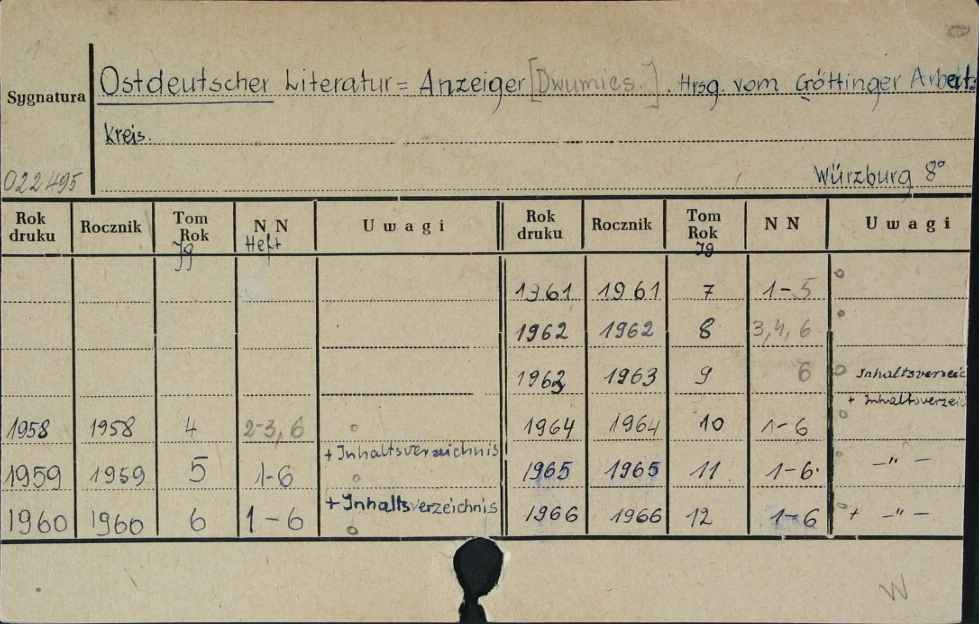 Ostdeutscher Literatur= Anzeiger [Dwumies.]. Hrsg. vom Göttinger Arbeits
Sygnatura
kreis.
022495
Würzburg 8°
Rok druku Rocznik Tom Rok Jg NN Heft Uwagi Rok druku Rocznik Tom Rok Jg NN Uwagi
1961 1961 7 1-5
1962 1962 8 3,4,6
1963 1963 9 6 Inhaltsverzeic
+ Inhaltsverzei
1958 1958 4 2-3, 6 1964 1964 10 1-6
+ Inhaltsverzeichnis
1959 1959 5 1-6 1965 1965 11 1-6. -"-
+ Inhaltsverzeichnis
1960 1960 6 1-6 1966 1966 12 1-6 + -"-
W